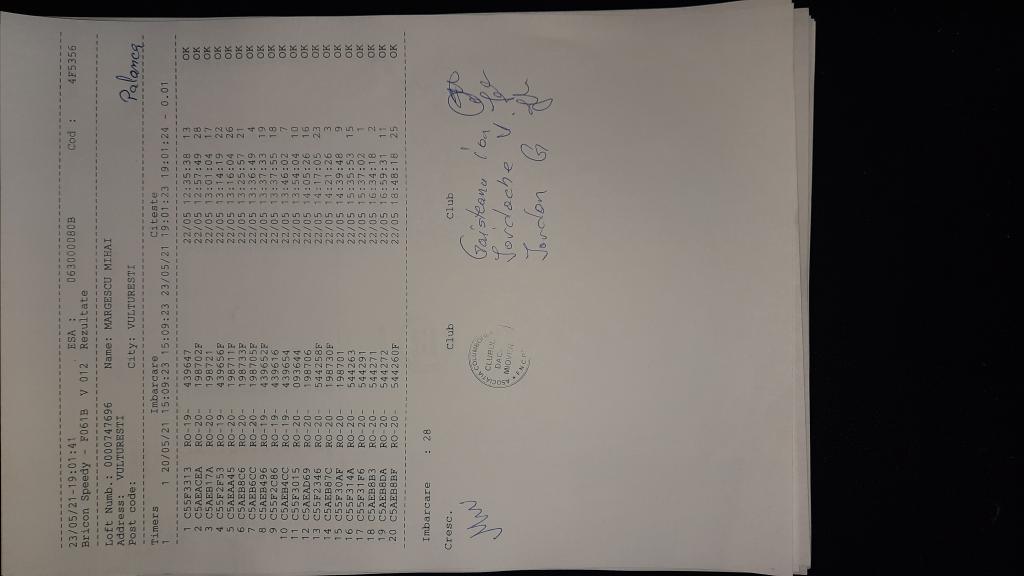 23/05/21-19:01:41 ESA : 063000080B Cod : 4F5356
Bricon Speedy - F061B V 012 Rezultate
Loft Numb.: 0000747696 Name: MARGESCU MIHAI
Address: VULTURESTI
Post code: City: VULTURESTI Palanca
Timers Imbarcare Citeste
1 1 20/05/21 15:09:23 15:09:23 23/05/21 19:01:23 19:01:24 - 0.01
1 C55F3313 RO-19- 439647 22/05 12:35:38 13 OK
2 C5AEACEA RO-20- 198702F 22/05 12:57:49 28 OK
3 C5AEB17A RO-20- 198721 22/05 13:01:04 17 OK
4 C55F2F53 RO-19- 439656F 22/05 13:14:19 22 OK
5 C5AEAA45 RO-20- 198711F 22/05 13:16:04 26 OK
6 C5AEB8C6 RO-20- 198733F 22/05 13:25:57 21 OK
7 C5AEB6CC RO-20- 198705F 22/05 13:36:49 4 OK
8 C5AEB496 RO-19- 439652F 22/05 13:37:33 19 OK
9 C55F2C86 RO-19- 439616 22/05 13:37:55 18 OK
10 C5AEB4CC RO-19- 439654 22/05 13:46:02 7 OK
11 C55F3015 RO-20- 093644 22/05 13:54:04 10 OK
12 C5AEAD69 RO-20- 198706 22/05 14:05:26 16 OK
13 C55F2346 RO-20- 544258F 22/05 14:17:05 23 OK
14 C5AEB87C RO-20- 198730F 22/05 14:21:26 3 OK
15 C55F30AF RO-20- 198701 22/05 14:39:48 9 OK
16 C55F314A RO-20- 544263 22/05 15:35:53 15 OK
17 C55F31F6 RO-20- 544291 22/05 15:37:02 1 OK
18 C5AEB8B3 RO-20- 544271 22/05 16:34:18 2 OK
19 C5AEB8DA RO-20- 544272 22/05 16:59:31 11 OK
20 C5AEBBBF RO-20- 544260F 22/05 18:48:18 25 OK
Imbarcare : 28
Cresc. Club Club
Iordache V.
Iordan G
ASOCIATIA COLUMBOFILA
CLUBUL
DAC